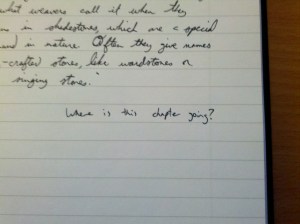 what weavers call it when they
in shadestones, which are a special
found in nature. Often they give names
-crafted stones, like wardstones or
singing stones."
Where is this chapter going?